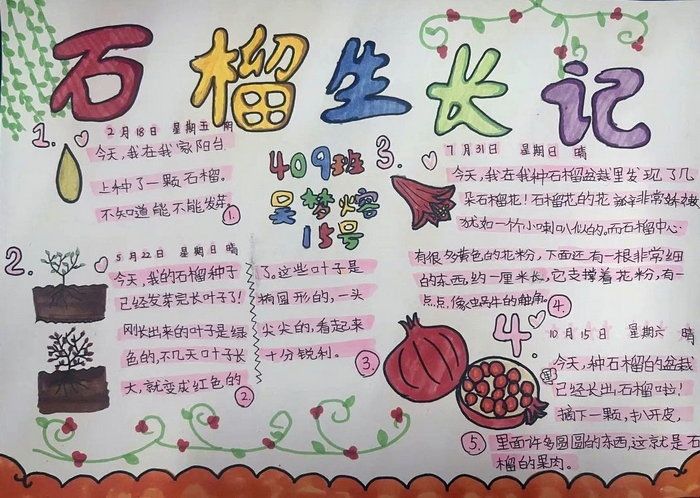 石榴生长记
409班
吴梦熔
15号
1.
2月18日 星期五 阴
今天,我在我家阳台
上种了一颗石榴.
不知道能不能发芽
①.
2.
5月22日 星期日 晴
今天,我的石榴种子
已经发芽完长叶子了!
刚长出来的叶子是绿
色的,不几天叶子长
大,就变成红色的
②.
了.这些叶子是
椭圆形的,一头
尖尖的,看起来
十分锐利。
③.
3.
7月31日 星期日 晴
今天,我在我种石榴盆栽里发现了几
朵石榴花!石榴花的花
犹如一个小喇叭似的。而石榴中心
有很多黄色的花粉,下面还有一根非常细
的东西,约一厘米长,它支撑着花粉,有一
点点像虫蜗牛的触角.
④.
4.
10月15日 星期六 晴
今天,种石榴的盆栽里
已经长出石榴啦!
摘下一颗,扒开皮,
⑤.
里面许多圆圆的东西,这就是石
榴的果肉。